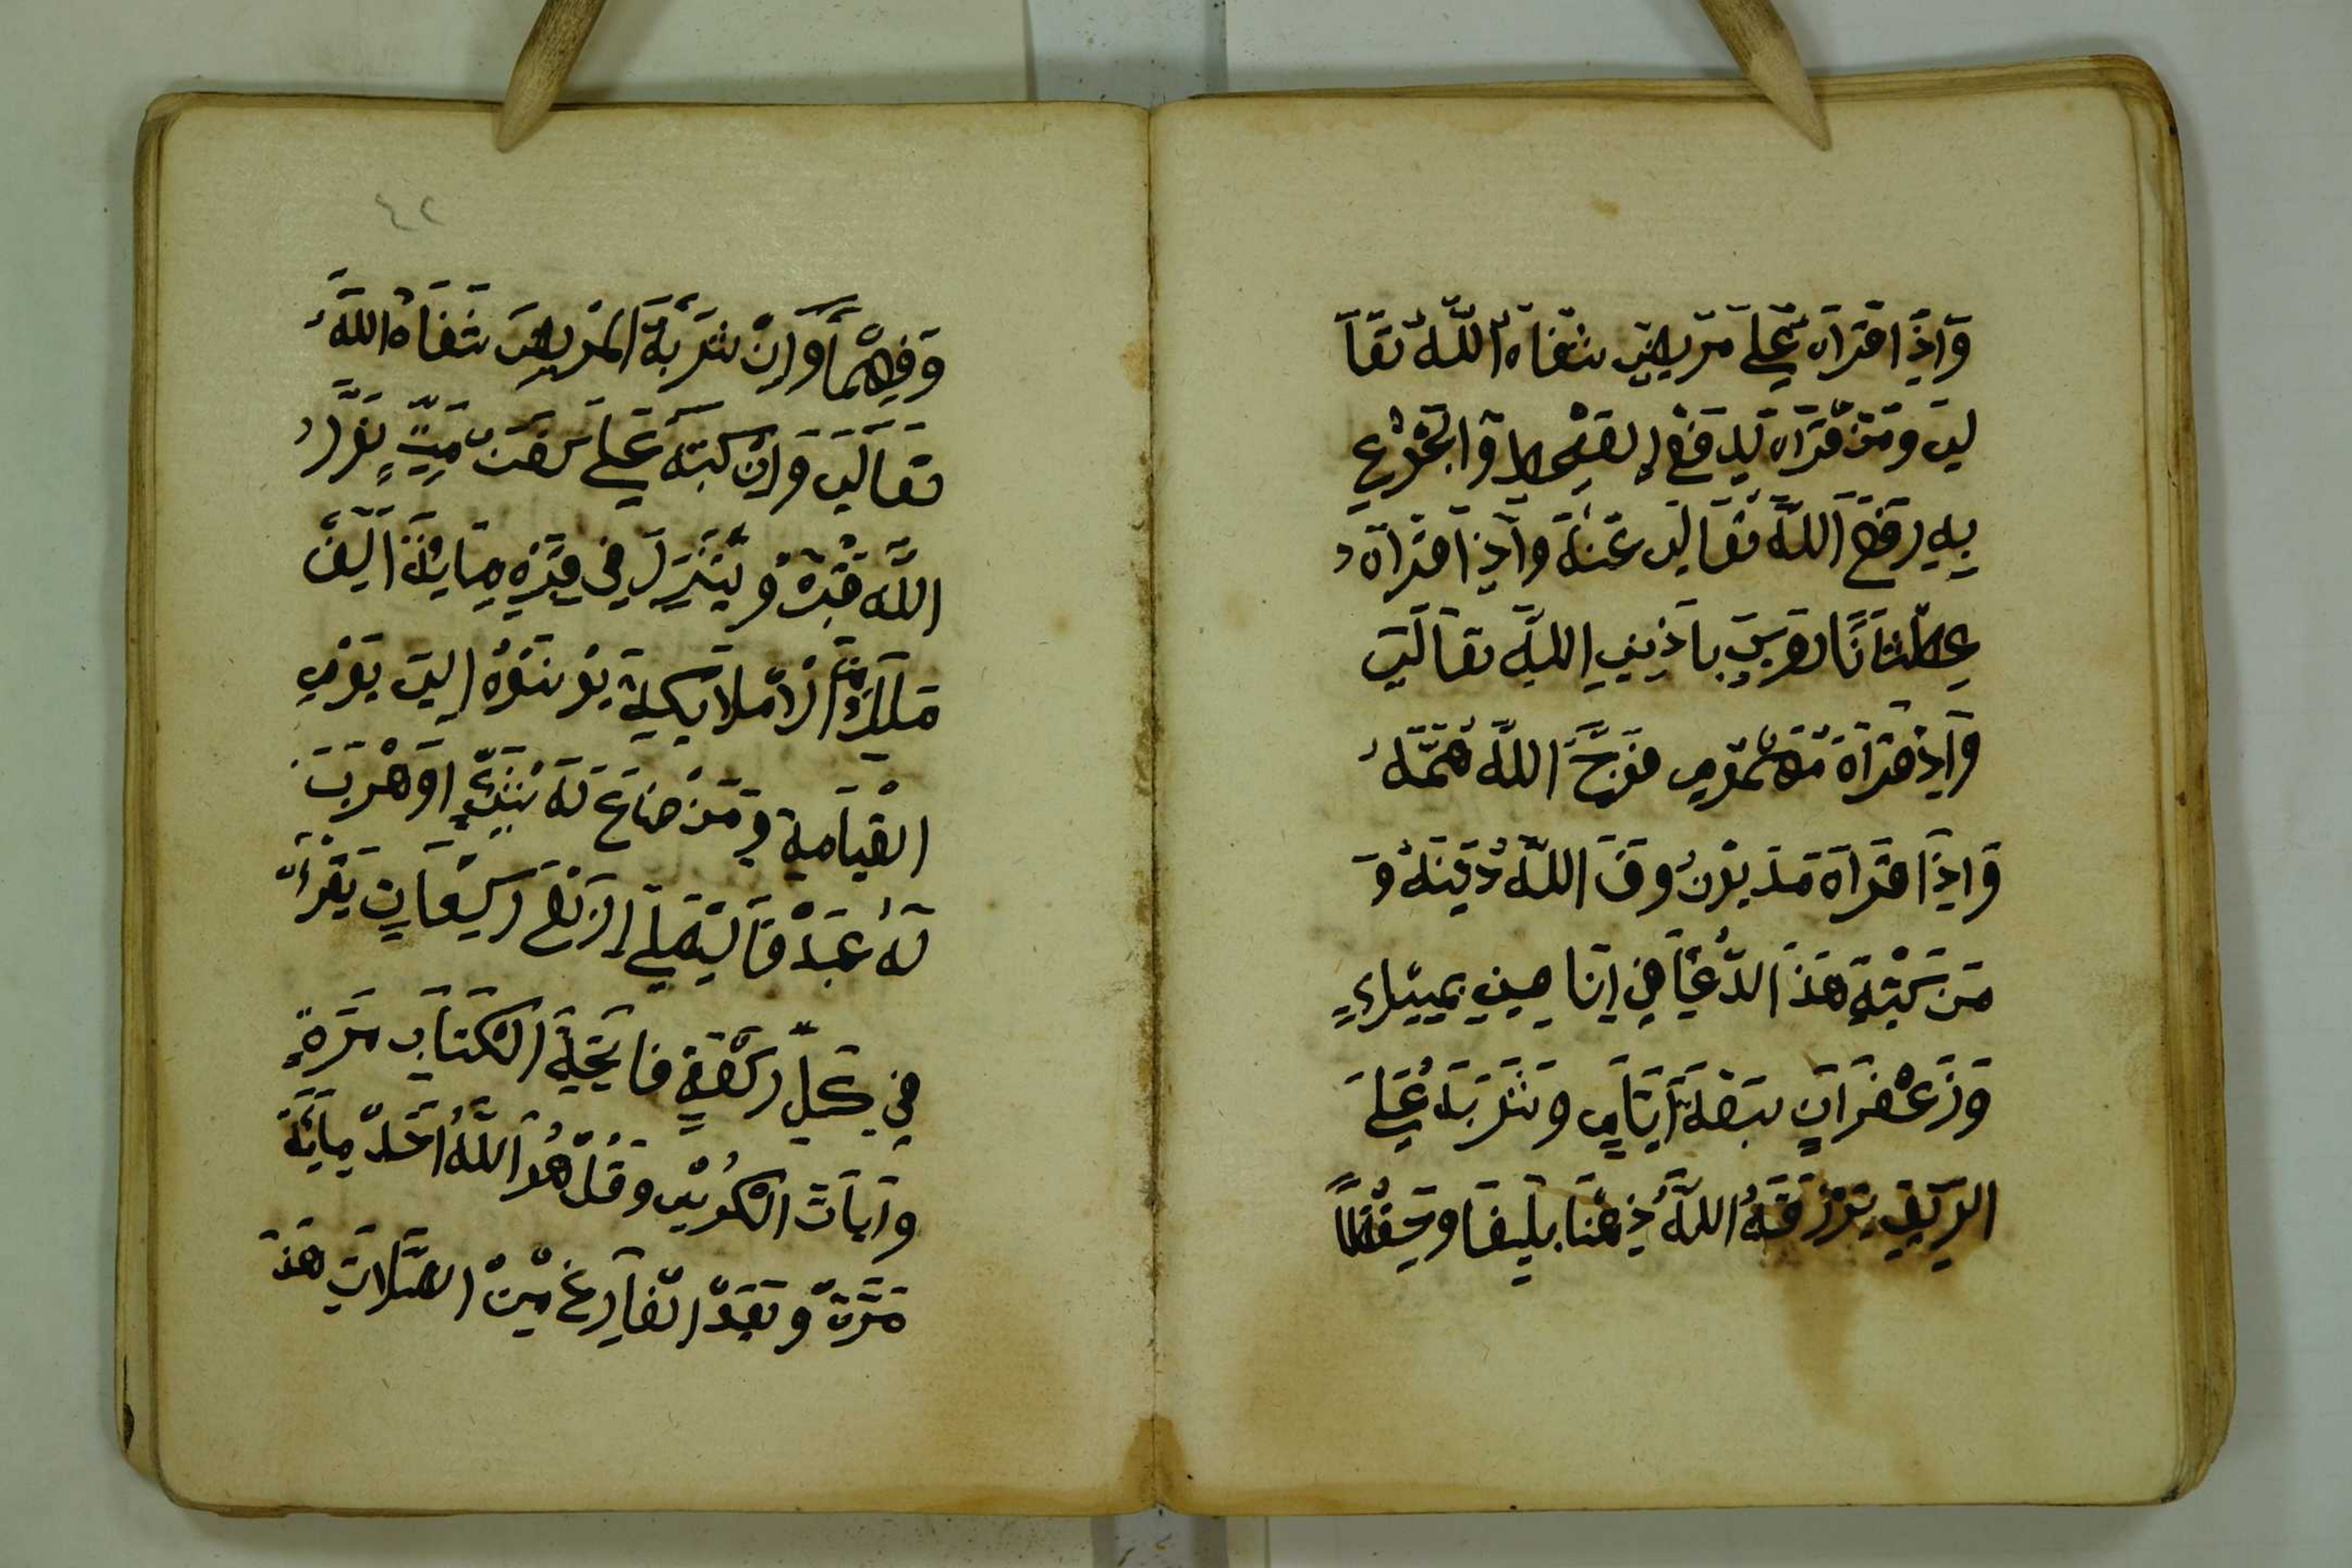 وَاِذَا قَرَاَه عَلَى مَرِيضٍ شَفَاهُ اللَّهُ تَعَا
لَى وَمَنْ قَرَاَه لِدَفْعِ القَحْطِ وَالجُوعِ
بِهِ رَفَعَ اللَّهُ تَعَالَى عَنْهُ وَاِذَا قَرَاَهُ
عِطْشَانًا رَوَى بِاذِنِ اللَّهِ تَعَالَى
وَاِذْ قَرَاَهُ مَهْمُومٍ فَرَجَّ اللَّهُ هَمَّهُ
وَاِذَا قَرَاَهُ مَدْيُونُ وَفَ اللَّهُ دَيْنَهُ وَ
مَن كَتَبَهِ هَذَ الدُّعَا فِي اِنَا صِينِي بِمِسْكٍ
وَزَعْفَرَانٍ سَبْعَةَ اَيَّامٍ وَشَرِبَهُ عَلَى
الرِّيقِ يَرْزُقَهُ اللَّهُ ذِهْنًا بَلِيغَا وَحِفْظًا
٤٢
وَفِهْمًا وَاِنْ شَرِبَهُ المَرِيضَ شَفَاهُ اللَّهُ
تَعَالَى وَاِنْ كَتَبَهُ عَلَى كَفَنِ مَيِّتٍ نَوَّرُ
اللَّه قَبْرَهُ وَيَنْزِلَ فِي قَبْرِهِ مِائَةَ اَلْفَ
مَلَكٍ مِنَ الْمَلَائِكَةِ يُونِسُوهُ اِلَى يَوْمِ
الْقِيَامَةِ وَمَنْ ضَاعَ لَهُ شَيْءٍ اَوْ هَرَبَ
لَهُ عَبْدْ فَالْيُصَلِّي اِرْبَعَ رَكَعَاتٍ يَقْرَأُ
فِي كُلِّ رَكْعَةٍ فَاتِحَةَ الْكِتَابِ مَرَّةٍ
وَآيَاتَ الْكُرْسِي وَقُلْ هُوَ اللَّهُ اَحَدْ مِائَةَ
مَرَّةً وَبَعْدَ الفَارِغِ مِنْ الصَّلَاتِ هَذَ